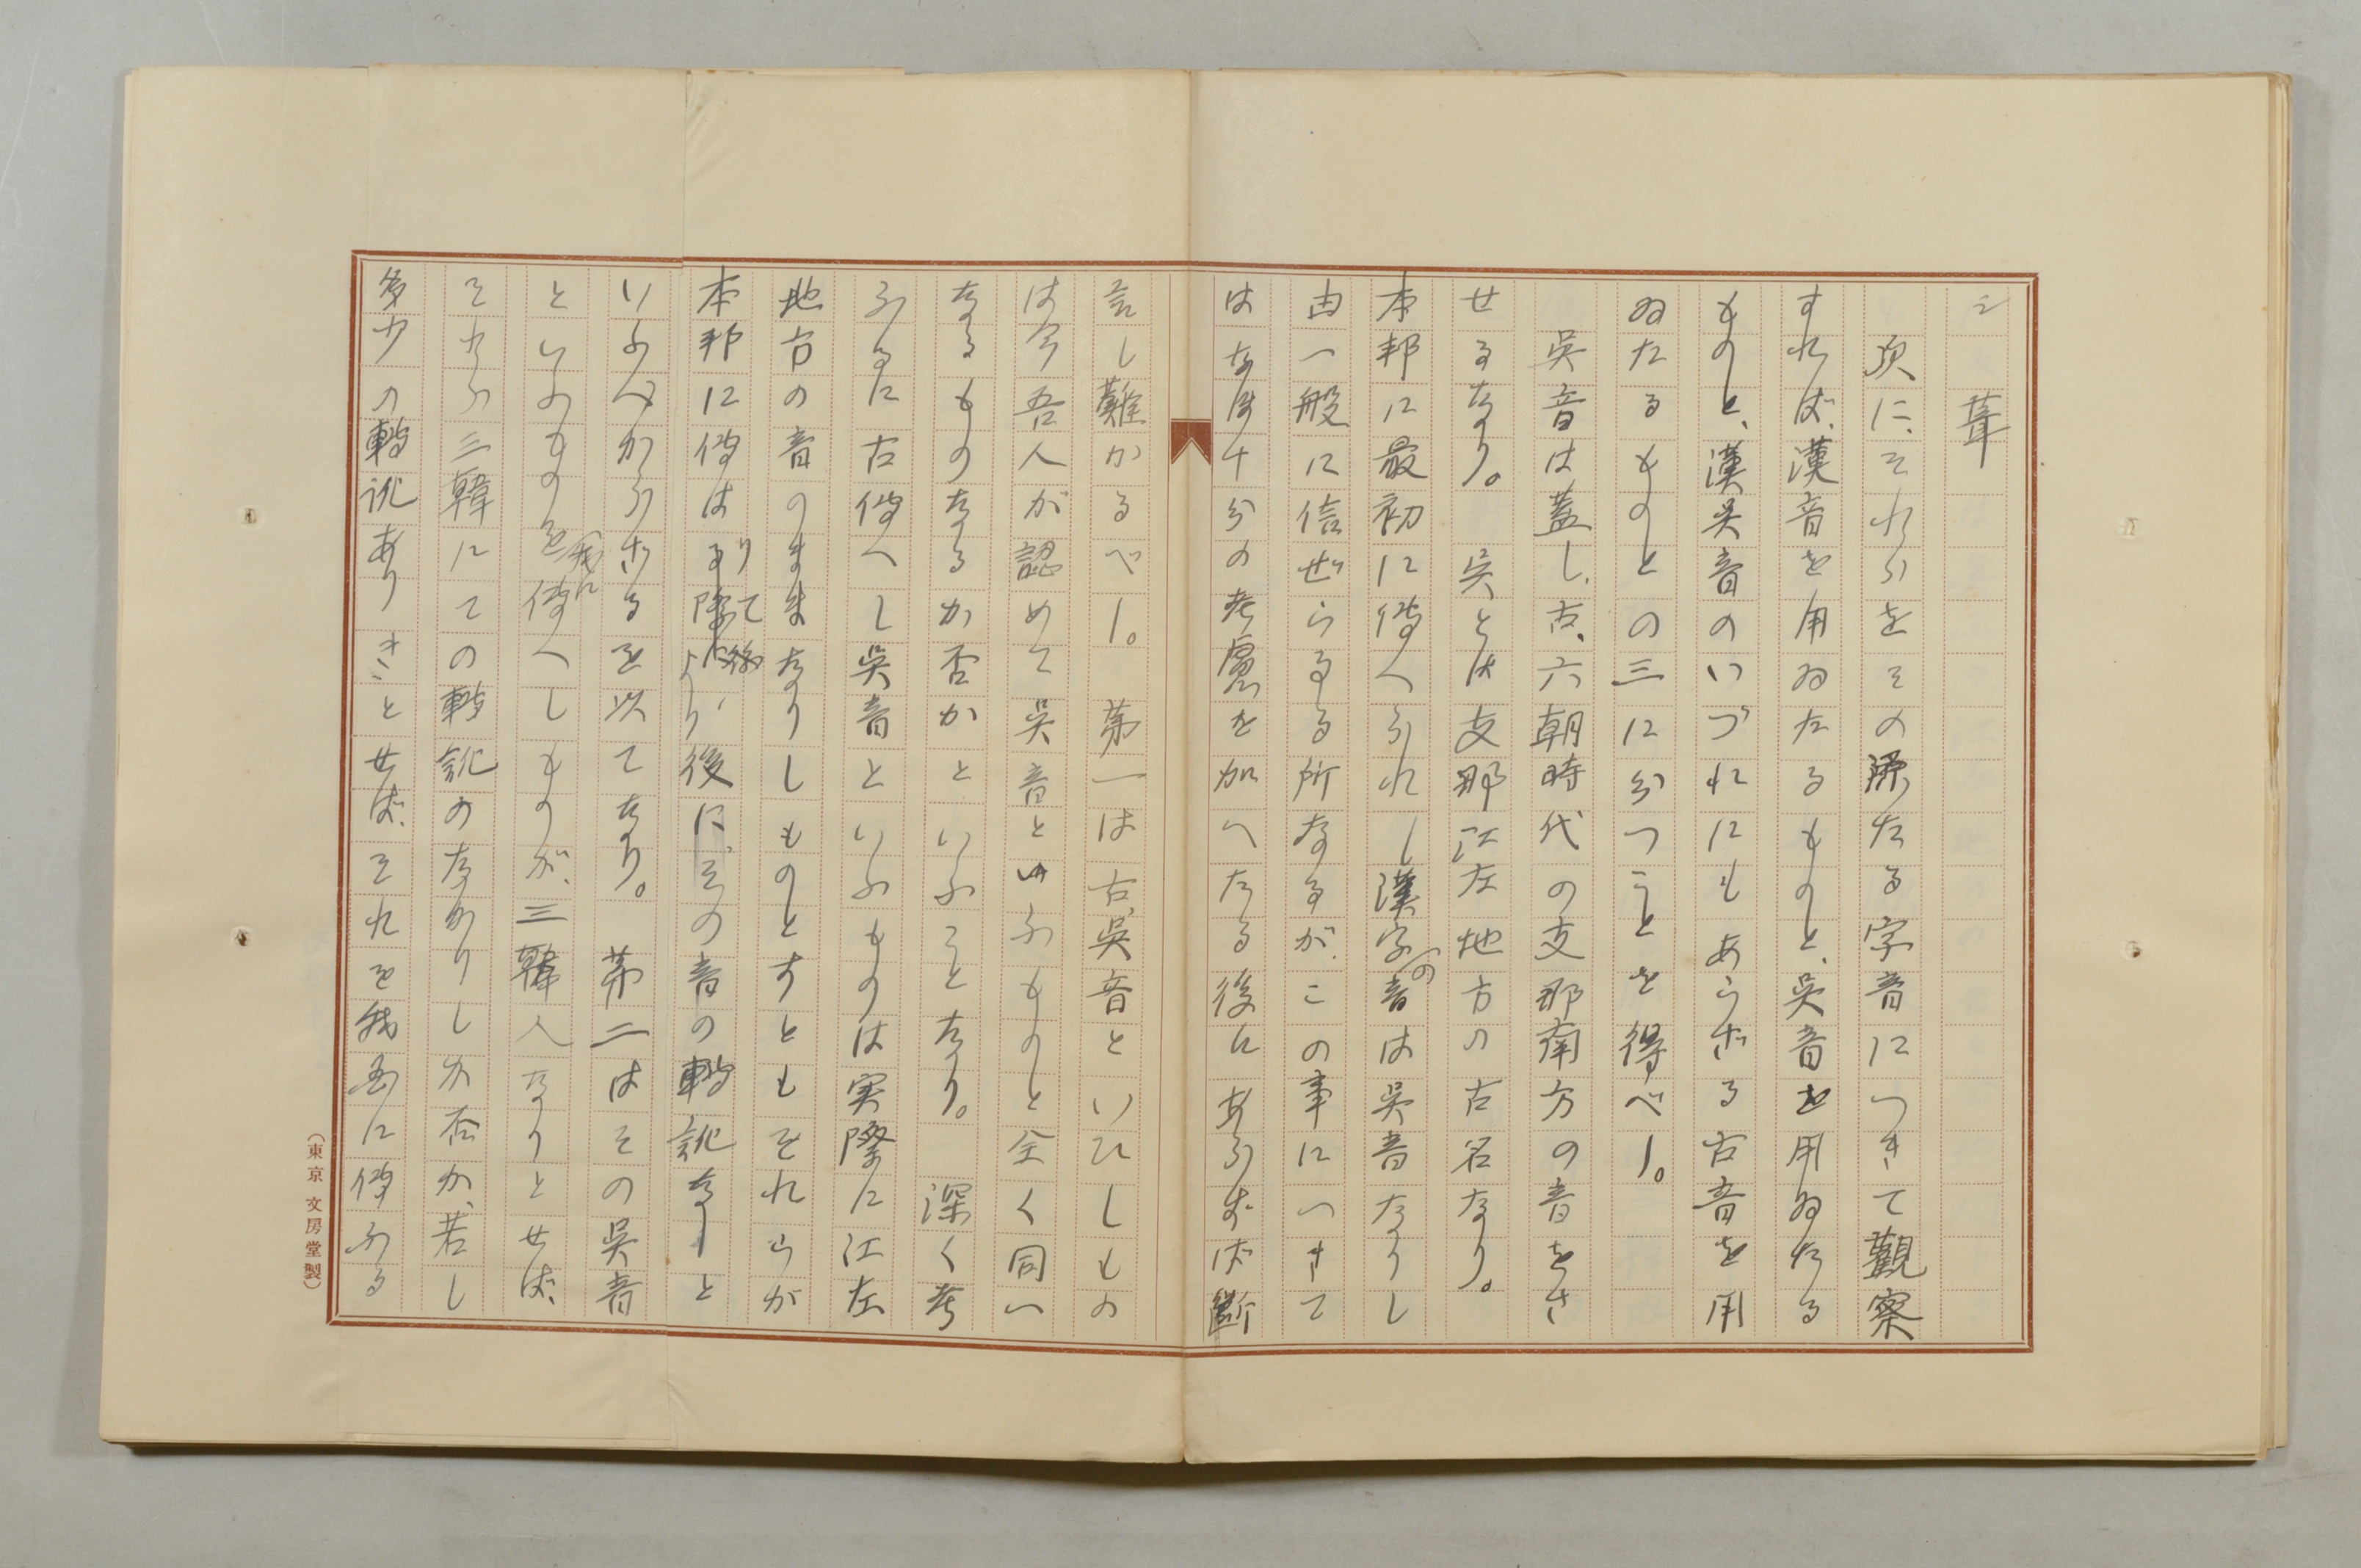 三　葺
次に、それらをその際たる字音につきて觀察
すれば、漢音を用ゐたるものと、呉音を用ゐたる
ものと、漢呉音のいづれにもあらざる古音を用
ゐたるものとの三に分つことを得べし。
呉音は蓋し、古、六朝時代の支那南方の音をさ
せるなり。　呉とは支那江左地方の古名なり。
本邦に最初に傳へられし漢字の音は呉音なりし
由一般に信ぜらるる所なるが、この事につきて
はなほ十分の考慮を加へたる後にあらずば斷
言し難かるべし。　第一は古、呉音といひしもの
は今吾人が認めて呉音といふものと全く同一
なるものなるか否かといふことなり。　深く考
ふるに古傳へし呉音といふものは実際に江左
地方の音のままなりしものとすともそれらが
本邦に傳はりて後、後にその音の轉訛なしと
いふべからざるを以てなり。　第二はその呉音
といふものを我に傳へしものが、三韓人なりとせば、
それら三韓にての轉訛のなかりしか否か、若し
多少の轉訛ありきとせば、それを我国に傳ふる
（東京 文房堂製）